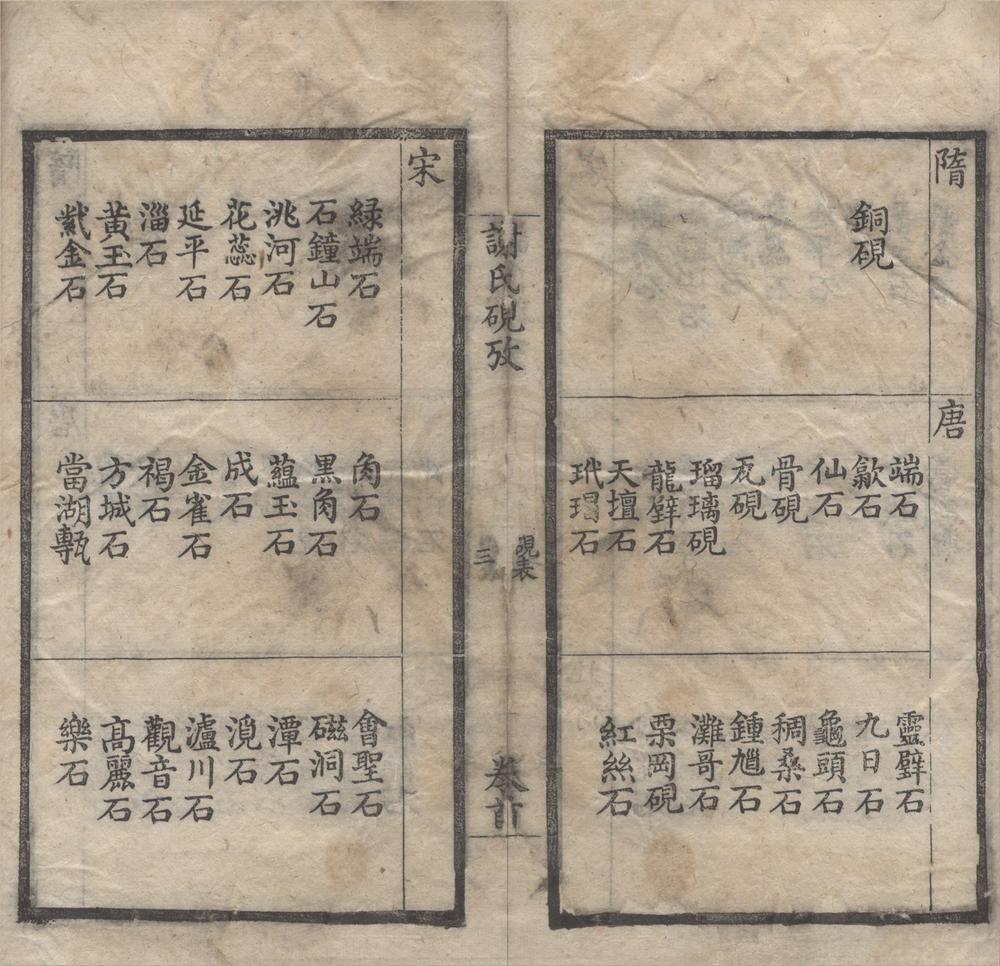 隋
銅硯
唐
端石
歙石
仙石
骨硯
瓦硯
瑠璃硯
龍壁石
天壇石
玳瑁石
靈璧石
九日石
龜頭石
稠桑石
鍾馗石
灘哥石
栗岡硯
紅絲石
謝氏硯攷
硯表
三
卷首
宋
緑端石
石鐘山石
洮河石
花蕊石
延平石
淄石
黃玉石
紫金石
角石
黑角石
蘊玉石
成石
金雀石
褐石
方城石
當湖甎
會聖石
磁洞石
潭石
滉石
瀘川石
觀音石
高麗石
樂石